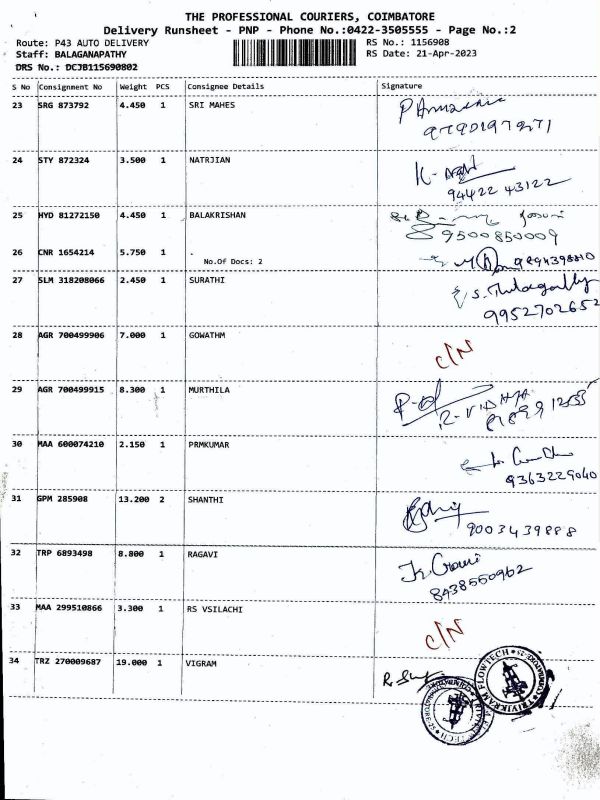 THE PROFESSIONAL COURIERS, COIMBATORE
Delivery Runsheet - PNP - Phone No.:0422-3505555 - Page No.:2
Route: P43 AUTO DELIVERY RS No.: 1156908
Staff: BALAGANAPATHY RS Date: 21-Apr-2023
DRS No.: DCJB115690802
S No Consignment No Weight PCS Consignee Details Signature
23 SRG 873792 4.450 1 SRI MAHES
24 STY 872324 3.500 1 NATRJIAN
94422 43122
25 HYD 81272150 4.450 1 BALAKRISHAN
9500850009
26 CNR 1654214 5.750 1 .
No.Of Docs: 2 9894398810
27 SLM 318208066 2.450 1 SURATHI
9952702652
28 AGR 700499906 7.000 1 GOWATHM
C/N
29 AGR 700499915 8.300 1 MURTHILA
R-VIDHYA
30 MAA 600074210 2.150 1 PRMKUMAR
9363229040
31 GPM 285908 13.200 2 SHANTHI
9003439888
32 TRP 6893498 8.800 1 RAGAVI
8438550962
33 MAA 299510866 3.300 1 RS VSILACHI
C/N
34 TRZ 270009687 19.000 1 VIGRAM
TRIVIKRAM FLOWTECH